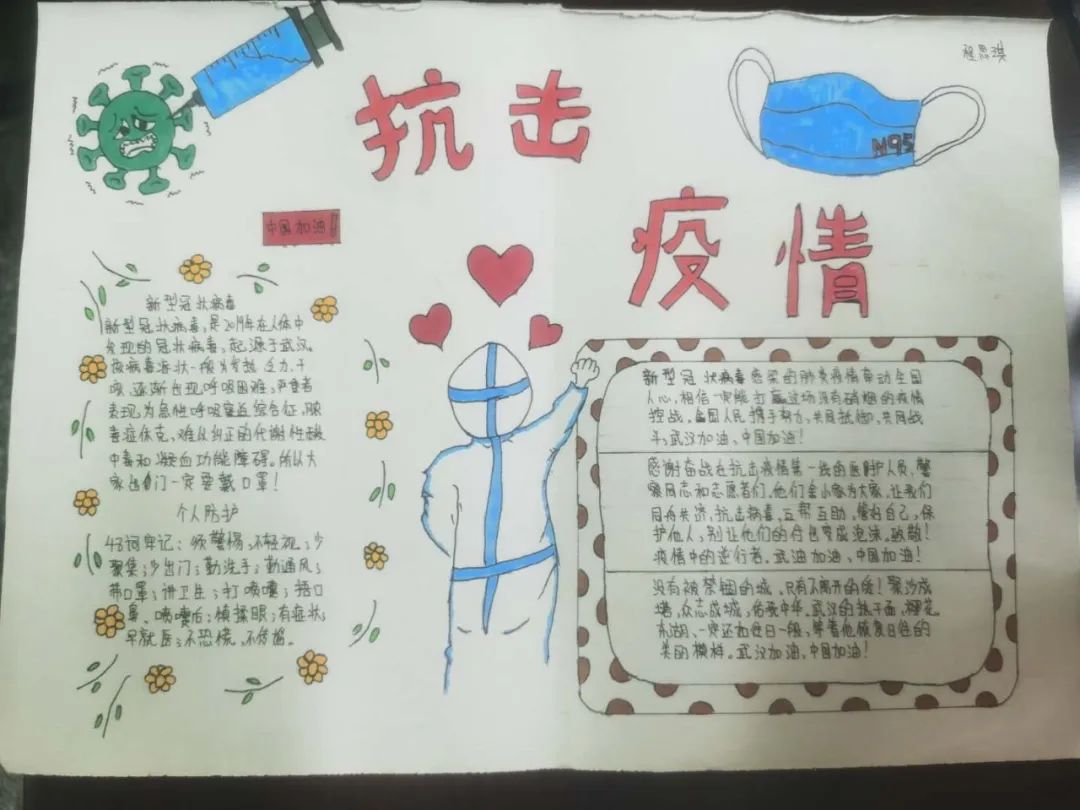 程思琪
抗击
疫情
N95
中国加油!
新型冠状病毒
新型冠状病毒,是2019年在人体中
发现的冠状病毒,起源于武汉。
该病毒症状一般为发热、乏力、干
咳、逐渐出现呼吸困难,严重者
表现为急性呼吸窘迫综合征,脓
毒症休克,难以纠正的代谢性酸
中毒和凝血功能障碍。所以大
家出门一定要戴口罩!
个人防护
48词牢记:须警惕;不轻视;少
聚集;少出门;勤洗手;勤通风;
带口罩;讲卫生;打喷嚏;捂口
鼻、喷嚏后;慎揉眼;有症状;
早就医;不恐慌,不传谣。
新型冠状病毒感染的肺炎疫情牵动全国
人心,相信一定能打赢这场没有硝烟的疫情
控战。全国人民携手努力,共同抵御,共同战
斗,武汉加油,中国加油!
感谢奋战在抗击疫情第一线的医护人员,警
察同志和志愿者们,他们舍小家为大家,让我们
同舟共济,抗击病毒,互帮互助,管好自己,保
护他人,别让他们的付出变成泡沫。致敬!
疫情中的逆行者。武汉加油,中国加油!
没有被禁锢的城,只有不离开的爱!聚沙成
塔,众志成城,佑我中华。武汉的热干面,樱花,
东湖、一定还如往日一般,等着他恢复日往的
美的模样。武汉加油,中国加油!